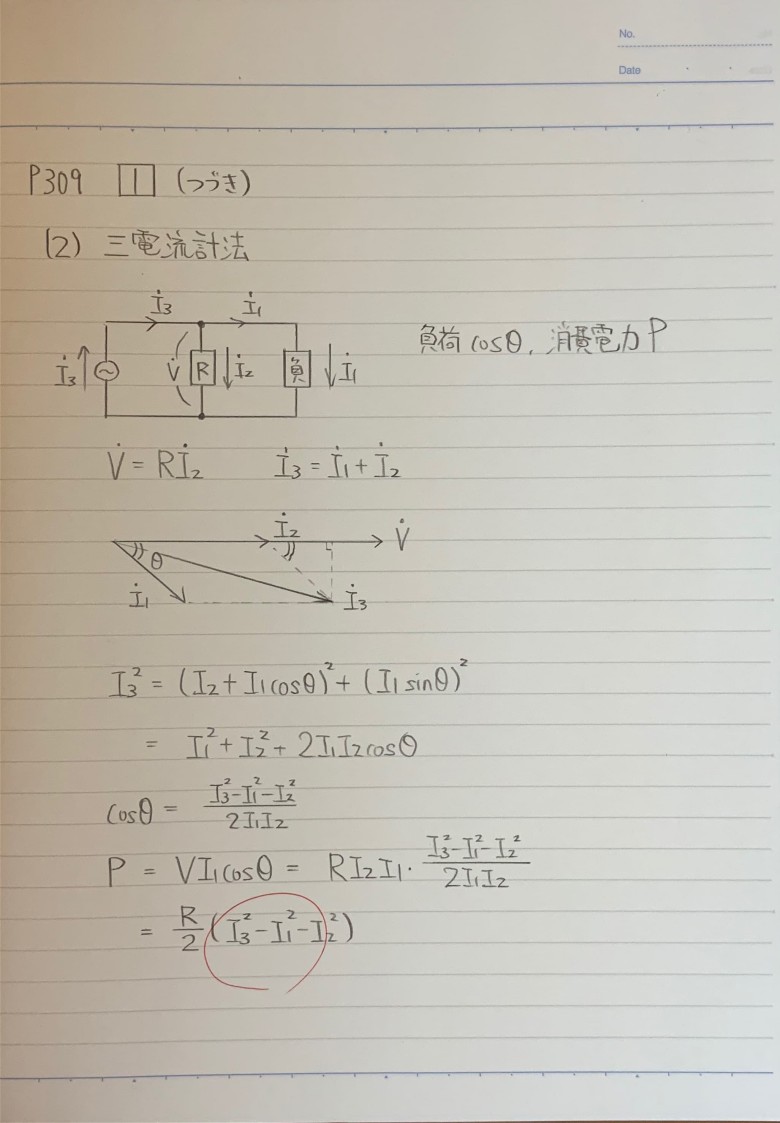 No.
Date
P309 1 (つづき)
(2) 三電流計法
İ₃ İ₁
負荷 cosθ, 消費電力 P
İ₃ V̇ R İ₂ 負 İ₁
V̇ = Rİ₂ İ₃ = İ₁ + İ₂
İ₂ V̇
θ
İ₁ İ₃
I₃² = (I₂ + I₁cosθ)² + (I₁sinθ)²
= I₁² + I₂² + 2I₁I₂cosθ
cosθ = (I₃² - I₁² - I₂²) / 2I₁I₂
P = VI₁cosθ = RI₂I₁ · (I₃² - I₁² - I₂²) / 2I₁I₂
= R/2 (I₃² - I₁² - I₂²)